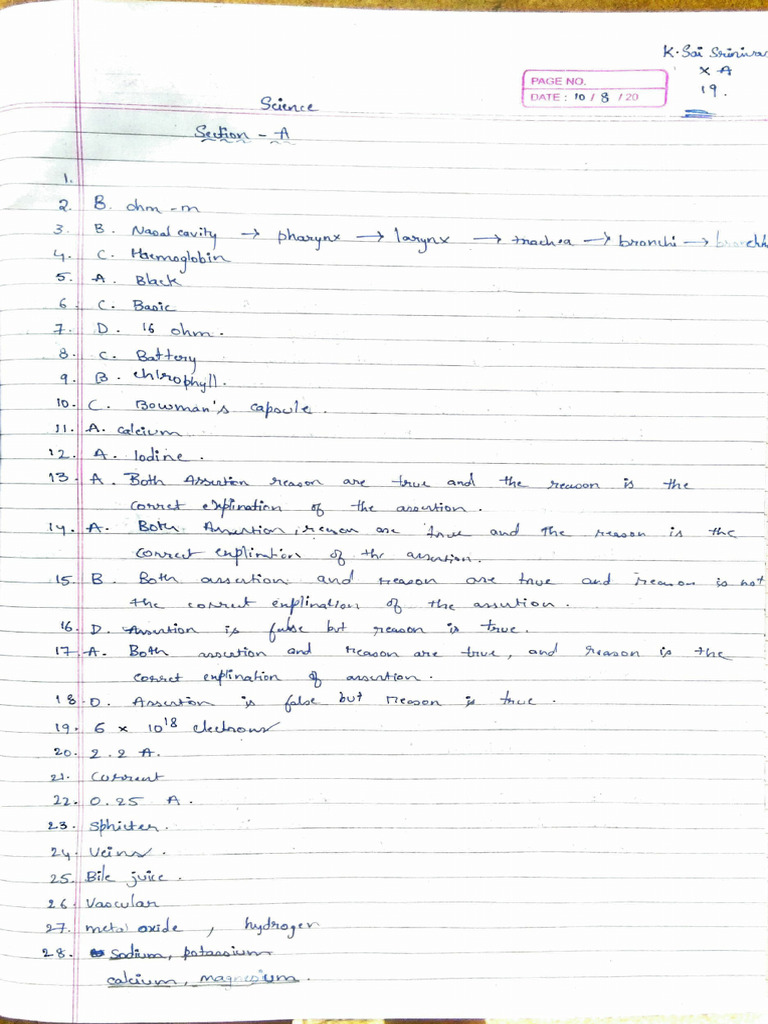 K. Sai Srinivas
X A
19.
PAGE NO.
DATE: 10 / 8 / 20
Science
Section - A
1.
2. B. ohm-m
3. B. Nasal cavity → pharynx → larynx → trachea → bronchi →
4. C. Haemoglobin
5. A. Black
6. C. Basic
7. D. 16 ohm.
8. C. Battery
9. B. chlrophyll.
10. C. Bowman's capsule.
11. A. calcium
12. A. Iodine.
13. A. Both Assertion reason are true and the reason is the
correct explination of the assertion.
14. A. Both Assertion, reason are true and the reason is the
correct explination of the assertion.
15. B. Both assertion and reason are true and reason is not
the correct explination of the assertion.
16. D. Assertion is false but reason is true.
17. A. Both assertion and reason are true, and reason is the
correct explination of assertion.
18. D. Assertion is false but reason is true.
19. 6 × 10^18 electrons
20. 2.2 A.
21. Current
22. 0.25 A.
23. Sphicter.
24. Veins.
25. Bile juice.
26. Vascular
27. metal oxide, hydrogen
28. Sodium, potassium
calcium, magnesium.